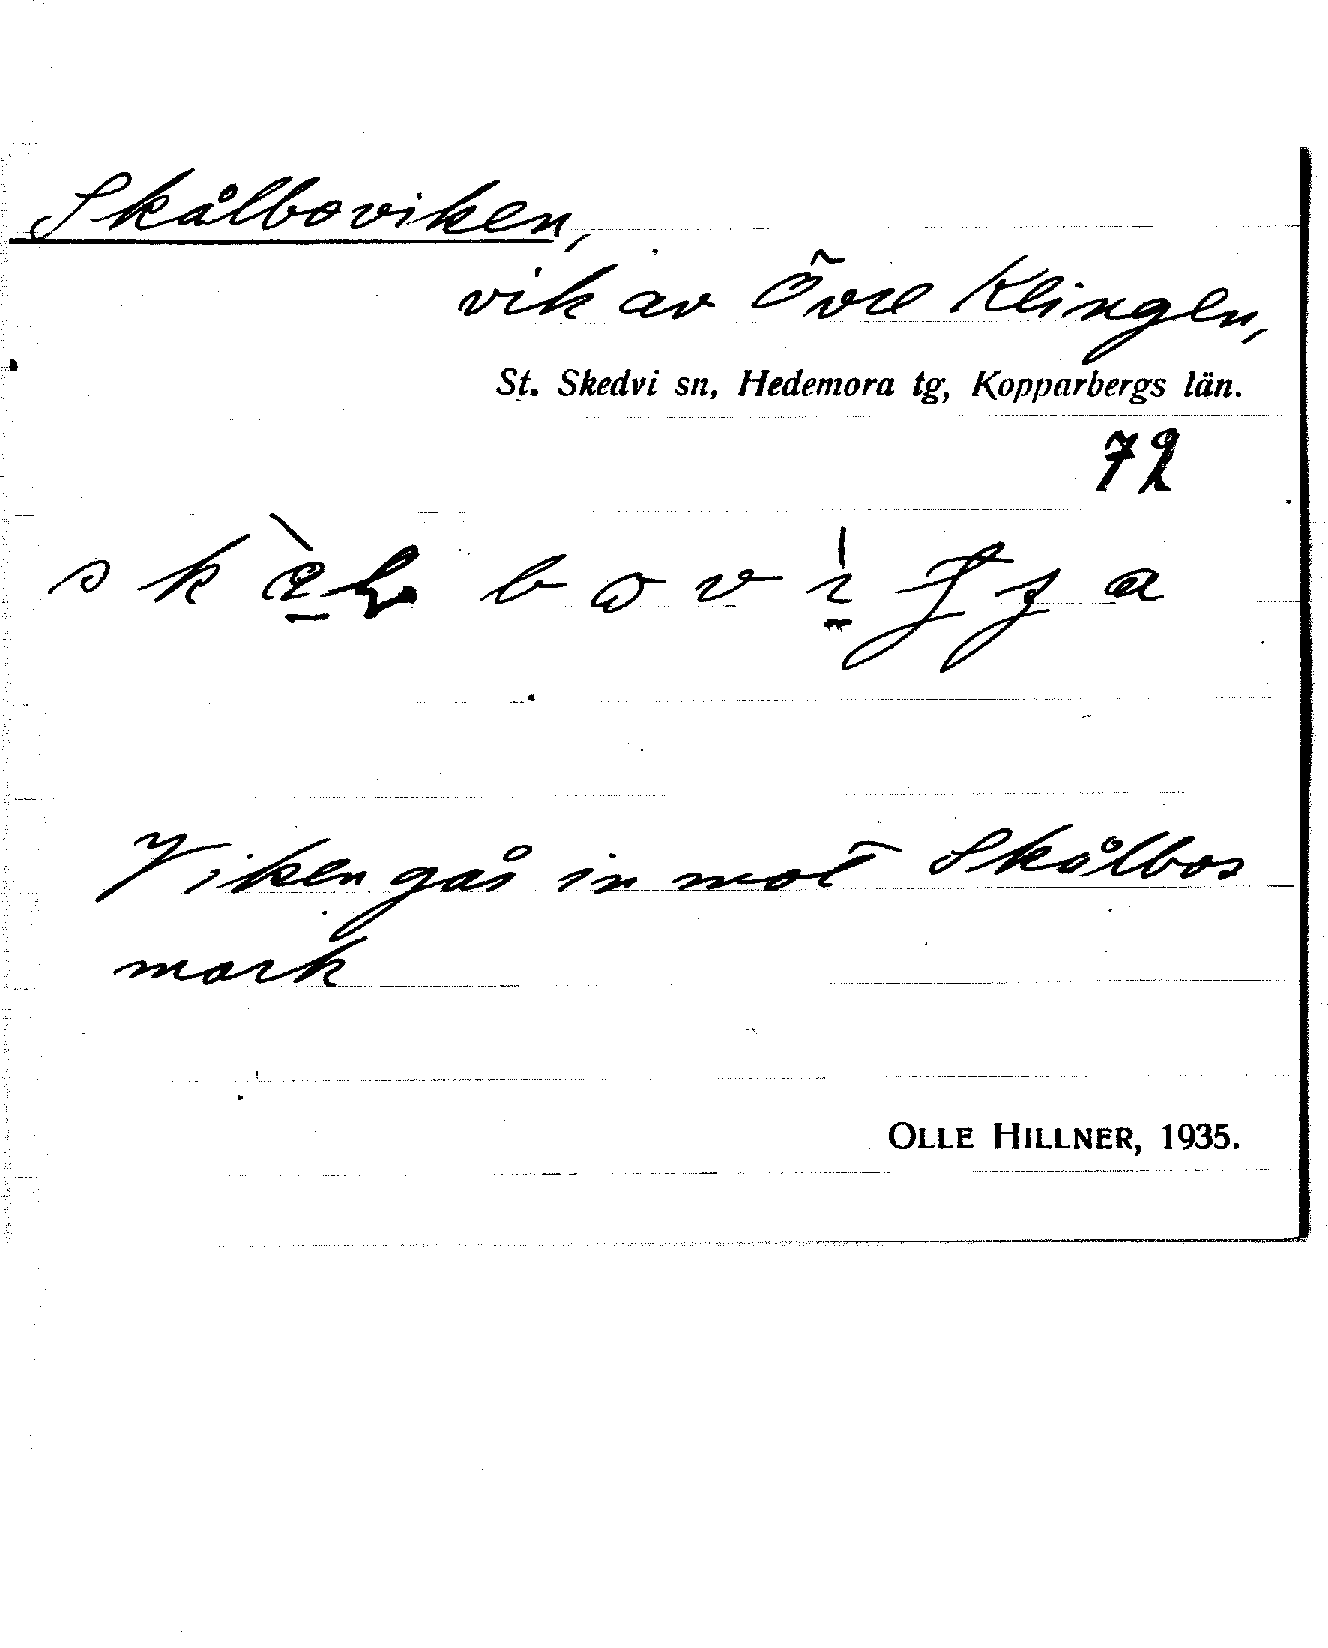 Skålboviken,
vik av Övre Klingen,
St. Skedvi sn, Hedemora tg, Kopparbergs län.
72
Viken går in mot Skålbos
mark
OLLE HILLNER, 1935.